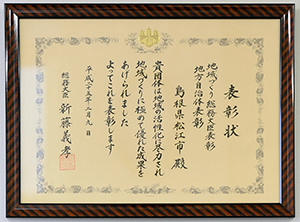 表彰状
地域づくり総務大臣表彰
地方自治体表彰
島根県松江市殿
貴団体は地域の活性化に尽力され
地域づくりに極めて優れた成果を
あげられました
よってこれを表彰します
平成二十五年二月九日
総務大臣 新藤義孝